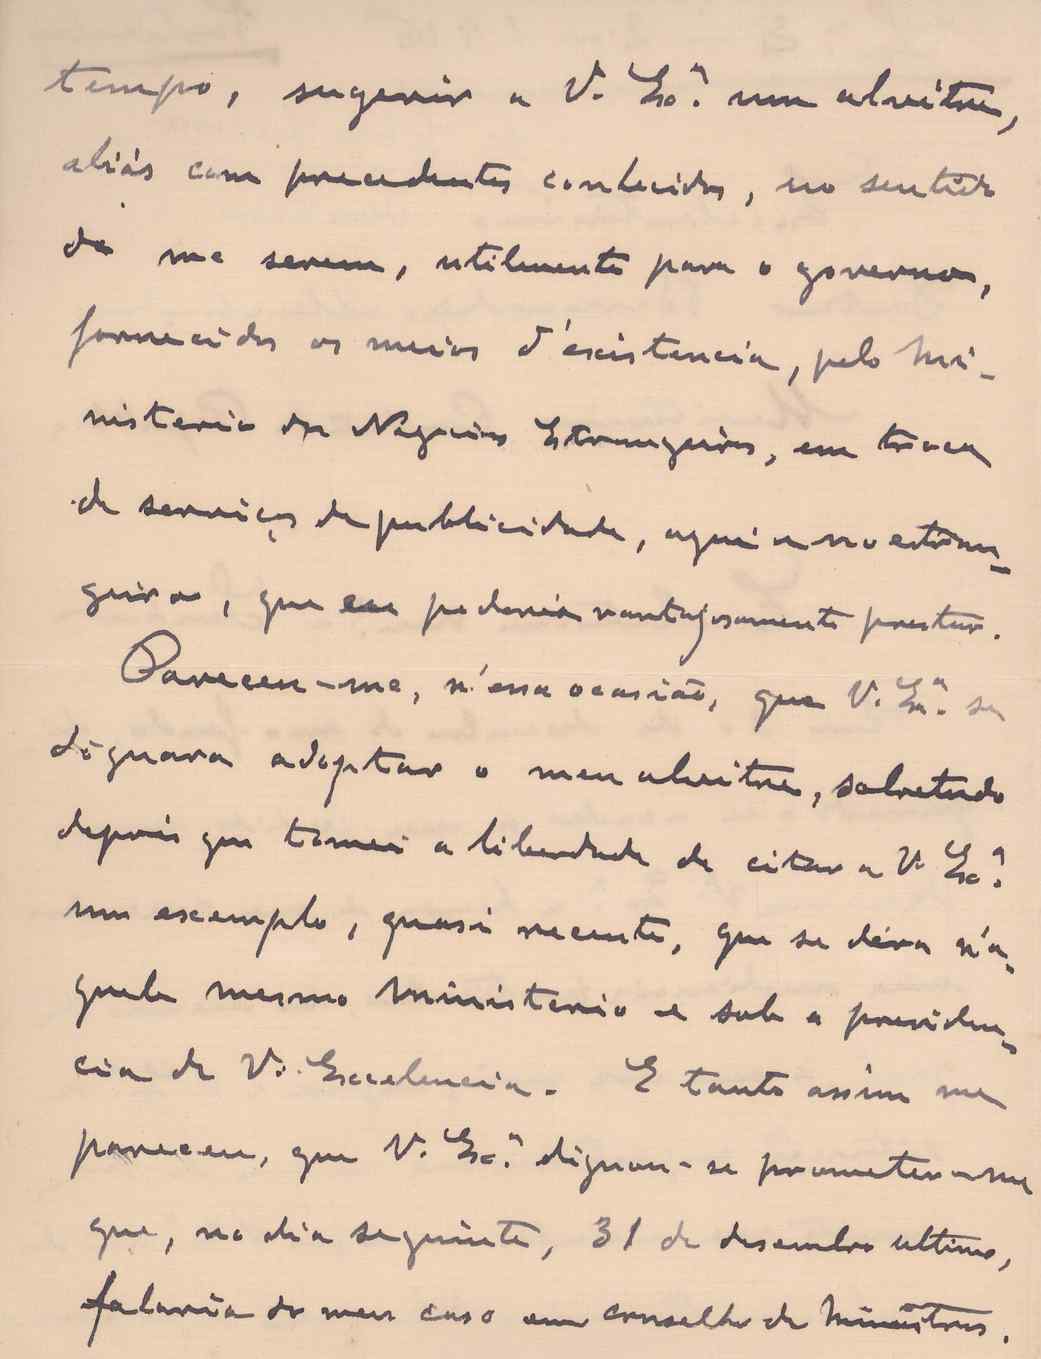 tempo, sugerir a V. Exª. um alvitre,
aliás com precedentes conhecidos, no sentido
de me serem, utilmente para o governo,
fornecidos os meios d'existencia, pelo Mi-
nisterio dos Negocios Estrangeiros, em troca
de serviços de publicidade, aqui e no estran-
geiro, que eu poderia vantajosamente prestar.
Pareceu-me, n'essa ocasião, que V. Exª. se
dignara adoptar o meu alvitre, sobretudo
depois que tomei a liberdade de citar a V. Exª.
um exemplo, quasi recente, que se déra n'a-
quele mesmo Ministerio e sob a presiden-
cia de V. Excelencia. E tanto assim me
pareceu, que V. Exª. dignou-se prometer-me
que, no dia seguinte, 31 de desembro ultimo,
falaria do meu caso em conselho de Ministros.